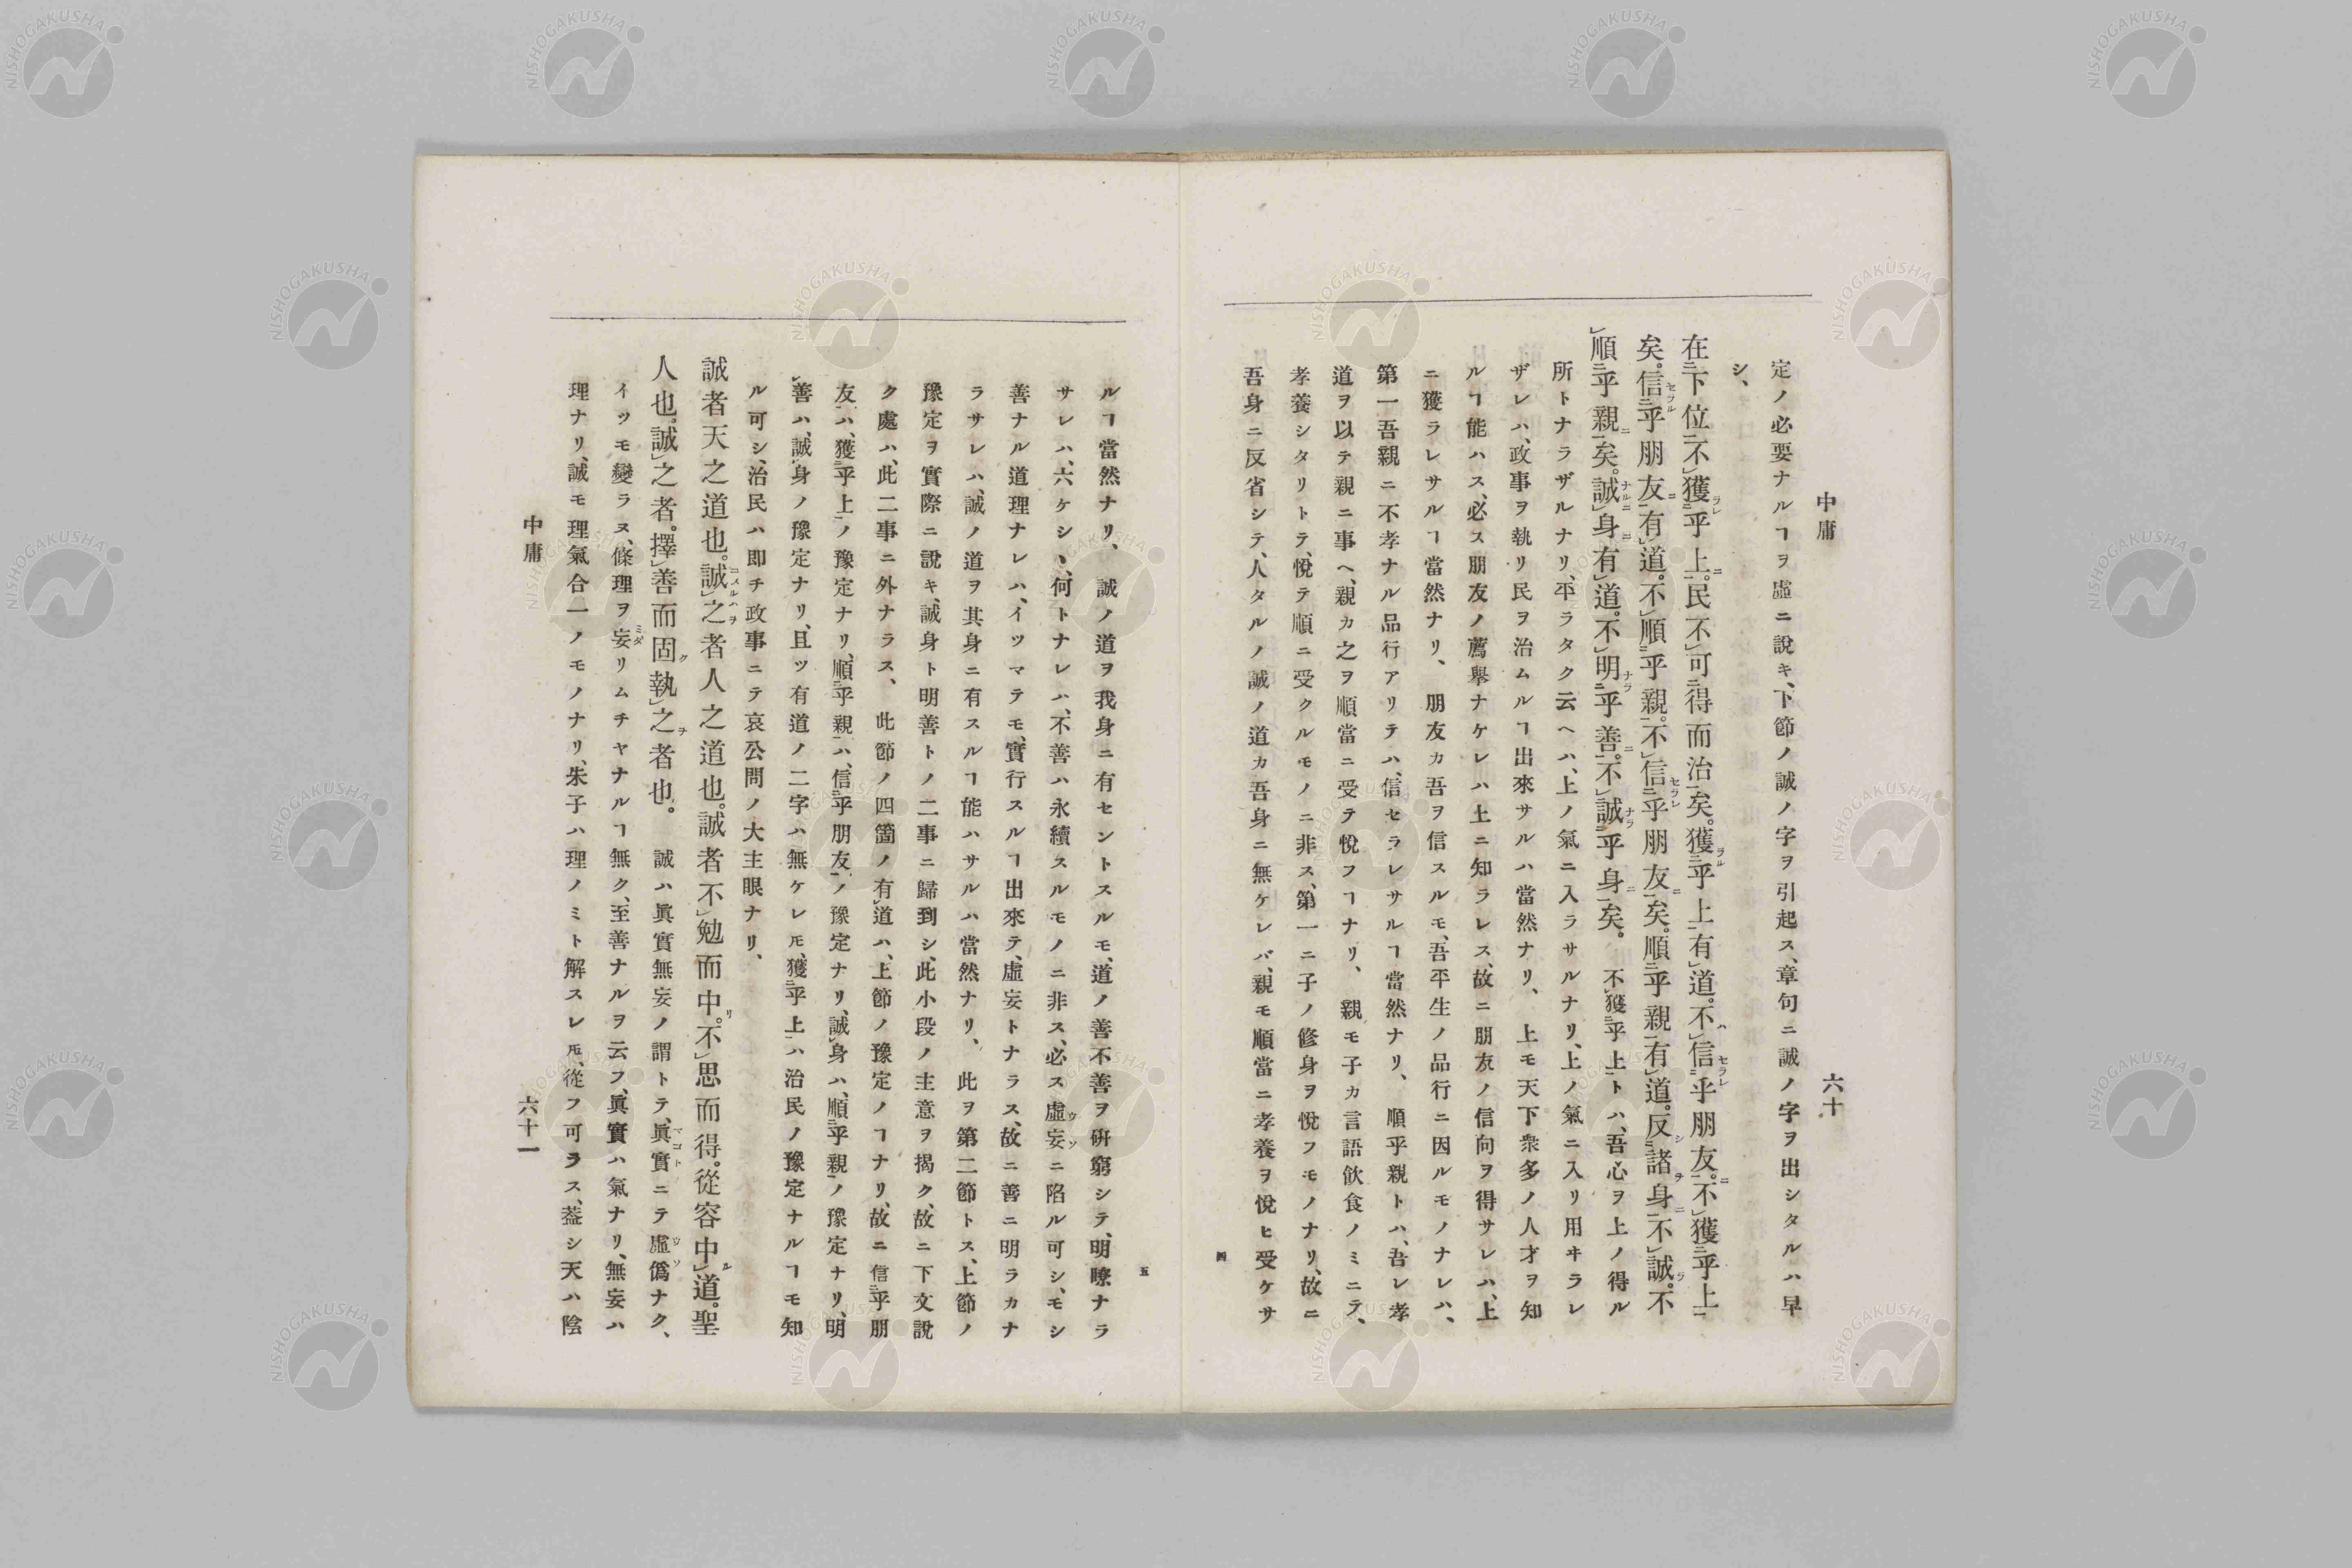 中庸
六十
定ノ必要ナルヿヲ虛ニ說キ、下節ノ誠ノ字ヲ引起ス、章句ニ誠ノ字ヲ出シタルハ早
シ、
在下位不獲乎上。民不可得而治矣。獲乎上有道。不信乎朋友。不獲乎上
矣。信乎朋友有道。不順乎親。不信乎朋友矣。順乎親有道。反諸身不誠。不
順乎親矣。誠身有道。不明乎善。不誠乎身矣。 不獲乎上トハ、吾心ヲ上ノ得ル
所トナラザルナリ、平ラタク云ヘハ、上ノ氣ニ入ラサルナリ、上ノ氣ニ入リ用ヰラレ
ザレハ、政事ヲ執リ民ヲ治ムルヿ出來サルハ當然ナリ、 上モ天下衆多ノ人才ヲ知
ルヿ能ハス、必ス朋友ノ薦擧ナケレハ上ニ知ラレス、故ニ朋友ノ信向ヲ得サレハ、上
ニ獲ラレサルヿ當然ナリ、 朋友カ吾ヲ信スルモ、吾平生ノ品行ニ因ルモノナレハ、
第一吾親ニ不孝ナル品行アリテハ、信セラレサルヿ當然ナリ、 順乎親トハ、吾レ孝
道ヲ以テ親ニ事ヘ、親カ之ヲ順當ニ受テ悅フヿナリ、 親モ子カ言語飮食ノミニテ、
孝養シタリトテ、悅テ順ニ受クルモノニ非ス、第一ニ子ノ修身ヲ悅フモノナリ、故ニ
吾身ニ反省シテ、人タルノ誠ノ道カ吾身ニ無ケレバ、親モ順當ニ孝養ヲ悅ヒ受ケサ
四
五
ルヿ當然ナリ、 誠ノ道ヲ我身ニ有セントスルモ、道ノ善不善ヲ硏窮シテ、明瞭ナラ
サレハ、六ケシヽ、何トナレハ、不善ハ永續スルモノニ非ス、必ス虛妄ニ陷ル可シ、モシ
善ナル道理ナレハ、イツマテモ、實行スルヿ出來テ、虛妄トナラス、故ニ善ニ明ラカナ
ラサレハ、誠ノ道ヲ其身ニ有スルヿ能ハサルハ當然ナリ、 此ヲ第二節トス、上節ノ
豫定ヲ實際ニ說キ、誠身ト明善トノ二事ニ歸到シ、此小段ノ主意ヲ揭ク、故ニ下文說
ク處ハ、此二事ニ外ナラス、 此節ノ四箇ノ有道ハ、上節ノ豫定ノヿナリ、故ニ信乎朋
友ハ、獲乎上ノ豫定ナリ、順乎親ハ、信乎朋友ノ豫定ナリ、誠身ハ、順乎親ノ豫定ナリ、明
善ハ、誠身ノ豫定ナリ、且ツ有道ノ二字ハ無ケレ𪜈、獲乎上ハ治民ノ豫定ナルヿモ知
ル可シ、治民ハ卽チ政事ニテ哀公問ノ大主眼ナリ、
誠者天之道也。誠之者人之道也。誠者不勉而中。不思而得。從容中道。聖
人也。誠之者。擇善而固執之者也。 誠ハ眞實無妄ノ謂トテ、眞實ニテ虛僞ナク、
イツモ變ラヌ、條理ヲ妄リムチヤナルヿ無ク、至善ナルヲ云フ、眞實ハ氣ナリ、無妄ハ
理ナリ、誠モ理氣合一ノモノナリ、朱子ハ理ノミト解スレ𪜈、從フ可ラス、葢シ天ハ陰
中庸
六十一